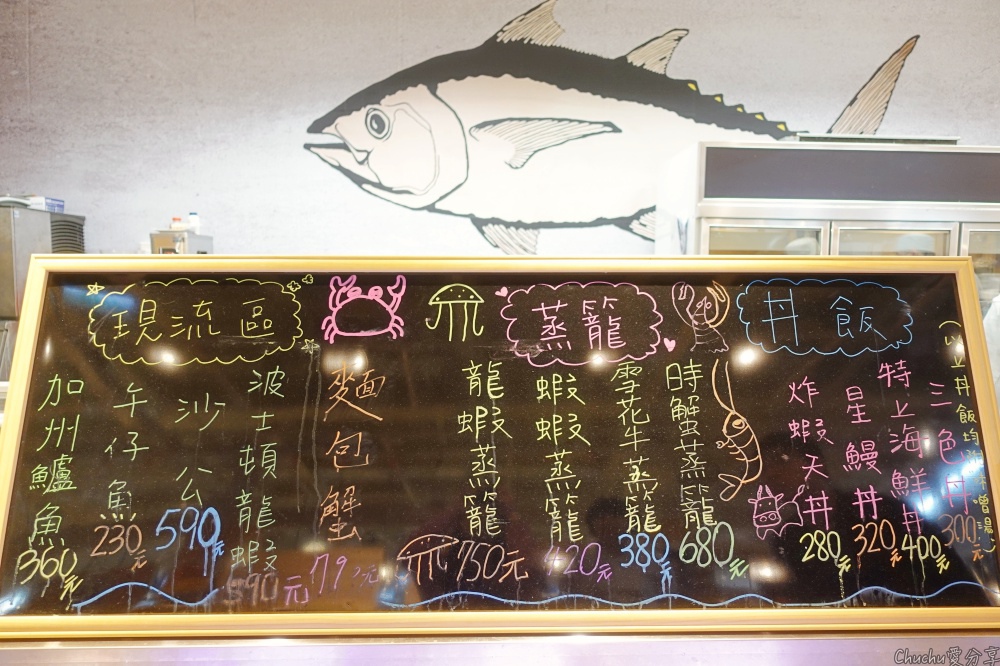 現流區
加州鱸魚
360元
午仔魚
230元
沙公
590元
波士頓龍蝦
590元
麵包蟹
蒸籠
龍蝦蒸籠
750元
蝦蝦蒸籠
420元
雪花牛蒸籠
380元
時蟹蒸籠
680元
丼飯
炸蝦天丼
280元
星鰻丼
320元
特上海鮮丼
400元
三色丼
300元
(以上丼飯均附味噌湯)
Chuchu愛分享